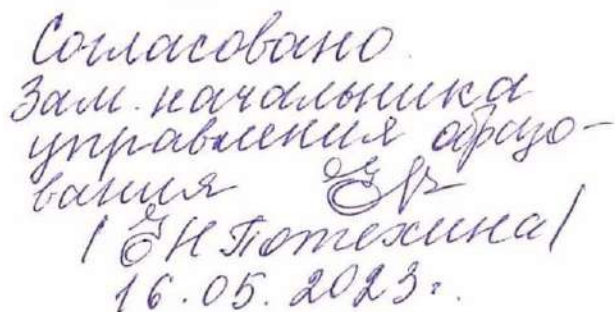 Согласовано
Зам. начальника
управления образо-
вания
/ЕН Потехина/
16.05.2023г.